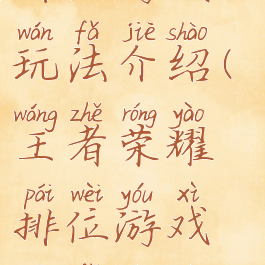 wán fǎ jiè shào
玩法介绍(
wáng zhě róng yào
王者荣耀
pái wèi yóu xì
排位游戏